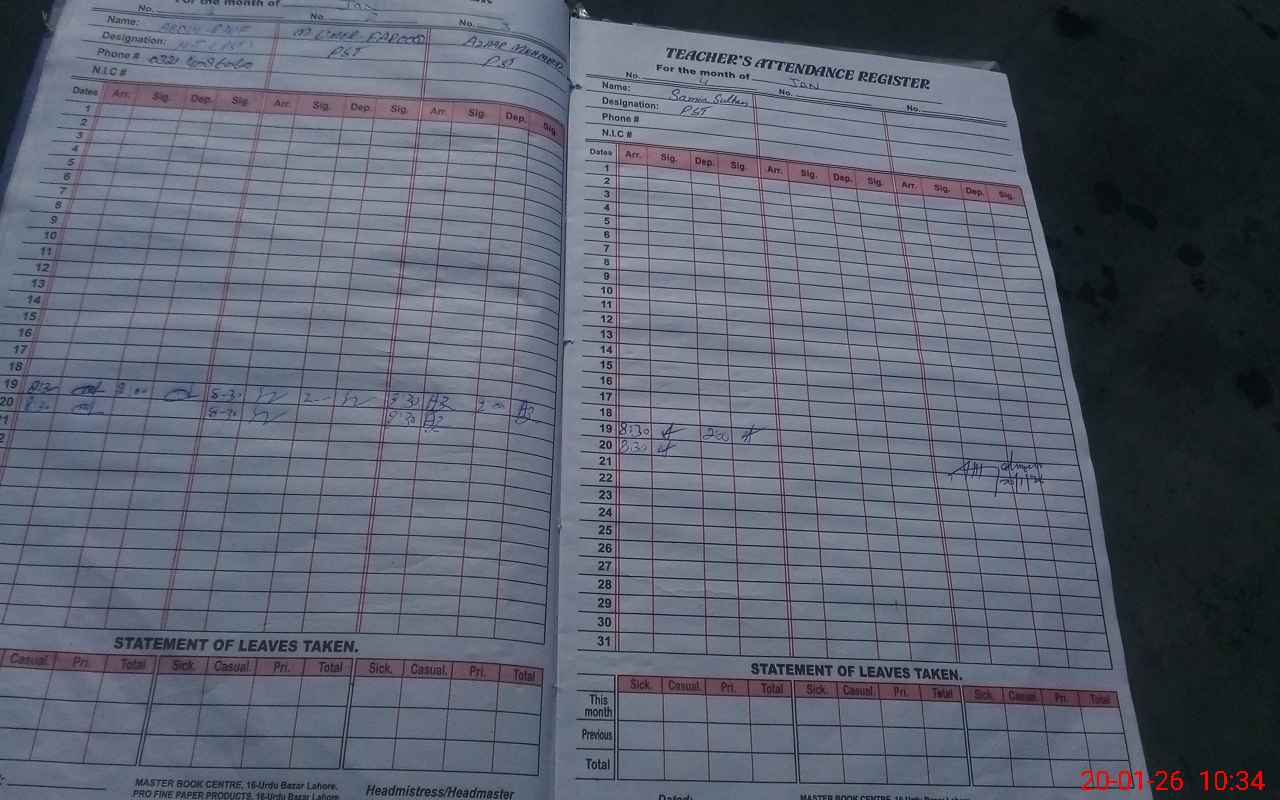 For the month of JAN
No. No. No. 3
Name: ABDUL RAUF M UMER FAROOQ AZHAR MEHMOOD
Designation: PST PST
Phone #
N.I.C #
Dates Arr. Sig. Dep. Sig. Arr. Sig. Dep. Sig. Arr. Sig. Dep. Sig.
1
2
3
4
5
6
7
8
9
10
11
12
13
14
15
16
17
18
19 8:30 2:00 8-30 2-- 8:30 AZ 2:00 AZ
20 8:30 8-30 8:30 AZ
STATEMENT OF LEAVES TAKEN.
Casual. Pri. Total Sick. Casual. Pri. Total Sick. Casual. Pri. Total
MASTER BOOK CENTRE, 16-Urdu Bazar Lahore.
PRO FINE PAPER PRODUCTS, 16-Urdu Bazar Lahore.
Headmistress/Headmaster
TEACHER'S ATTENDANCE REGISTER
For the month of JAN
No. 4 No. No.
Name: Samia Sultan
Designation: PST
Phone #
N.I.C #
Dates Arr. Sig. Dep. Sig. Arr. Sig. Dep. Sig. Arr. Sig. Dep. Sig.
1
2
3
4
5
6
7
8
9
10
11
12
13
14
15
16
17
18
19 8:30 2:00
20 8:30
21
22
23
24
25
26
27
28
29
30
31
STATEMENT OF LEAVES TAKEN.
Sick. Casual. Pri. Total Sick. Casual. Pri. Total Sick. Casual. Pri. Total
This month
Previous
Total
Dated:
MASTER BOOK CENTRE, 16-Urdu Bazar Lahore.
20-01-26 10:34